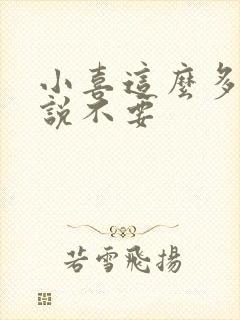 小喜這麼多
說不要
若雪飛揚